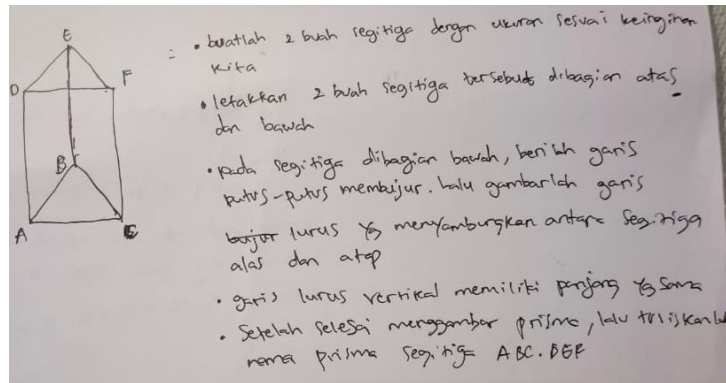 E
D
F
B
A
C
= • buatlah 2 buah segitiga dengan ukuran sesuai keinginan
kita
• letakkan 2 buah segitiga tersebut dibagian atas
dan bawah
• pada segitiga dibagian bawah, berilah garis
putus-putus membujur. Lalu gambarlah garis
bujur lurus yg menyambungkan antara segitiga
alas dan atap
• garis lurus vertikal memiliki panjang yg sama
• Setelah selesai menggambar prisma, lalu tuliskanlah
nama prisma segitiga ABC.DEF